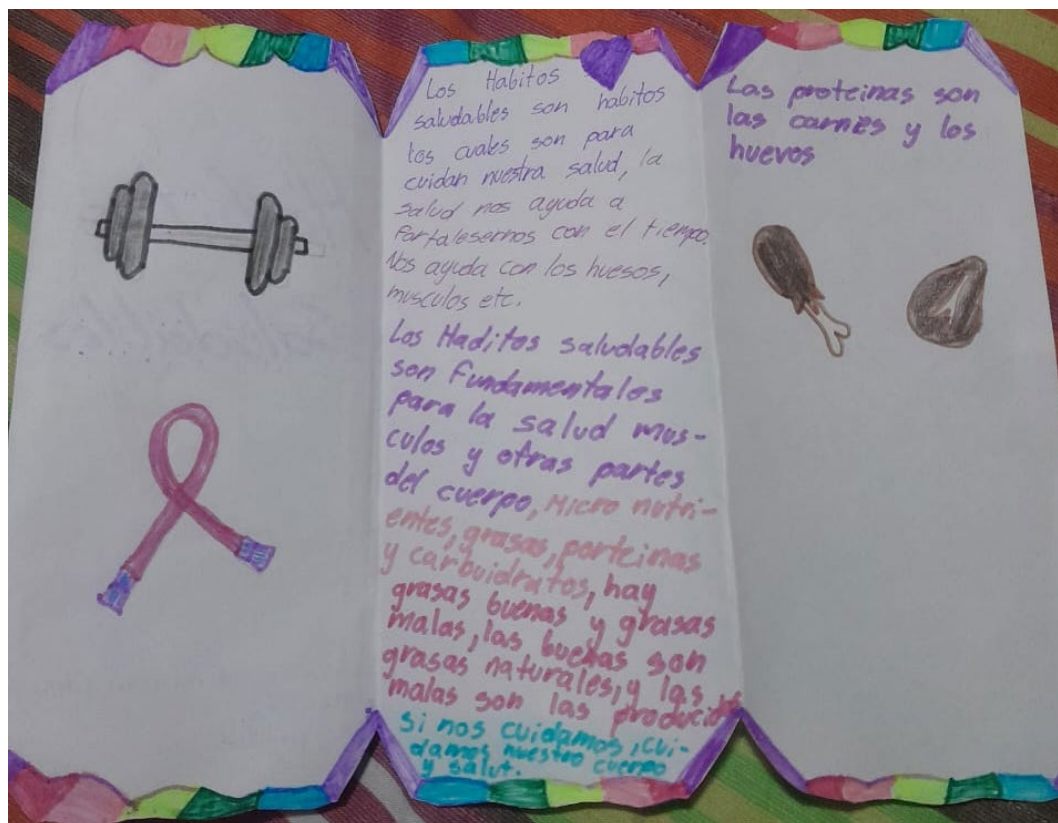 Los Habitos
saludables son habitos
los cuales son para
cuidan nuestra salud, la
salud nos ayuda a
fortalesernos con el tiempo.
Nos ayuda con los huesos,
musculos etc.
Los Haditos saludables
son fundamentales
para la salud mus-
culos y otras partes
del cuerpo, Micro nutri-
entes, grasas, porteinas
y carbuidratos, hay
grasas buenas y grasas
malas, las buenas son
grasas naturales, y las
malas son las producidas
Si nos cuidamos, cui-
damos nuestro cuerpo
y salut.
Las proteinas son
las carnes y los
huevos